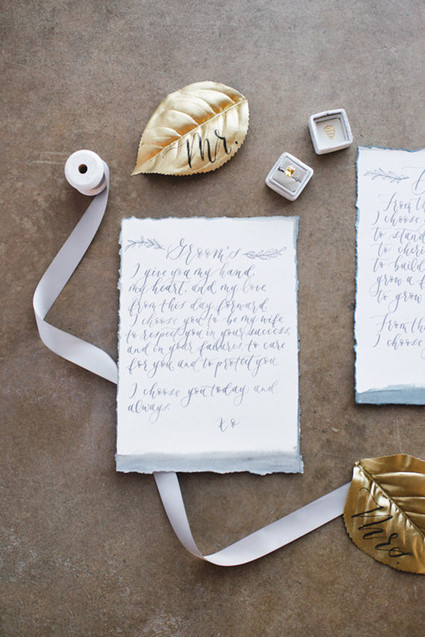 Mr.
Groom's
I give you my hand,
my heart, and my love
from this day forward.
I choose you to be my wife
to respect you in your success,
and in your failures to care
for you and to protect you.
I choose you today, and
always.
xo
From
I choose
to stand
to
to build
grow a
to grow
From
I choose
Mrs.